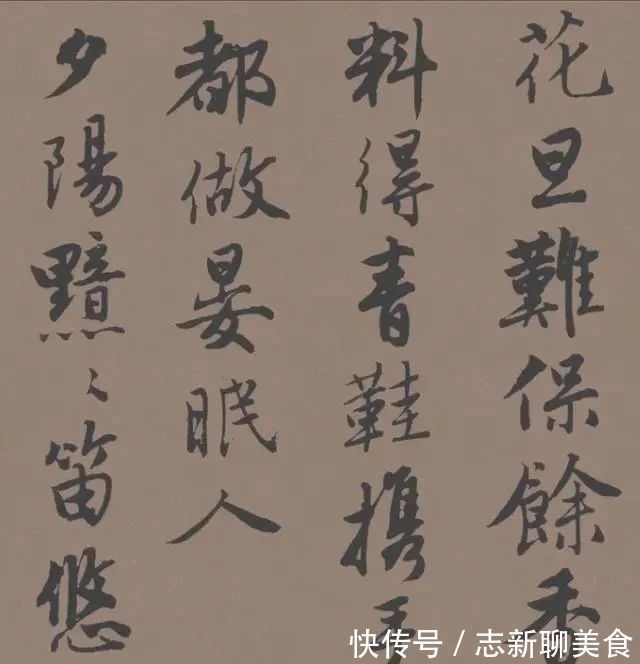 花旦難保餘
料得青鞋攜
都做晏眠人
夕陽黯〻笛悠
快传号 / 志新聊美食